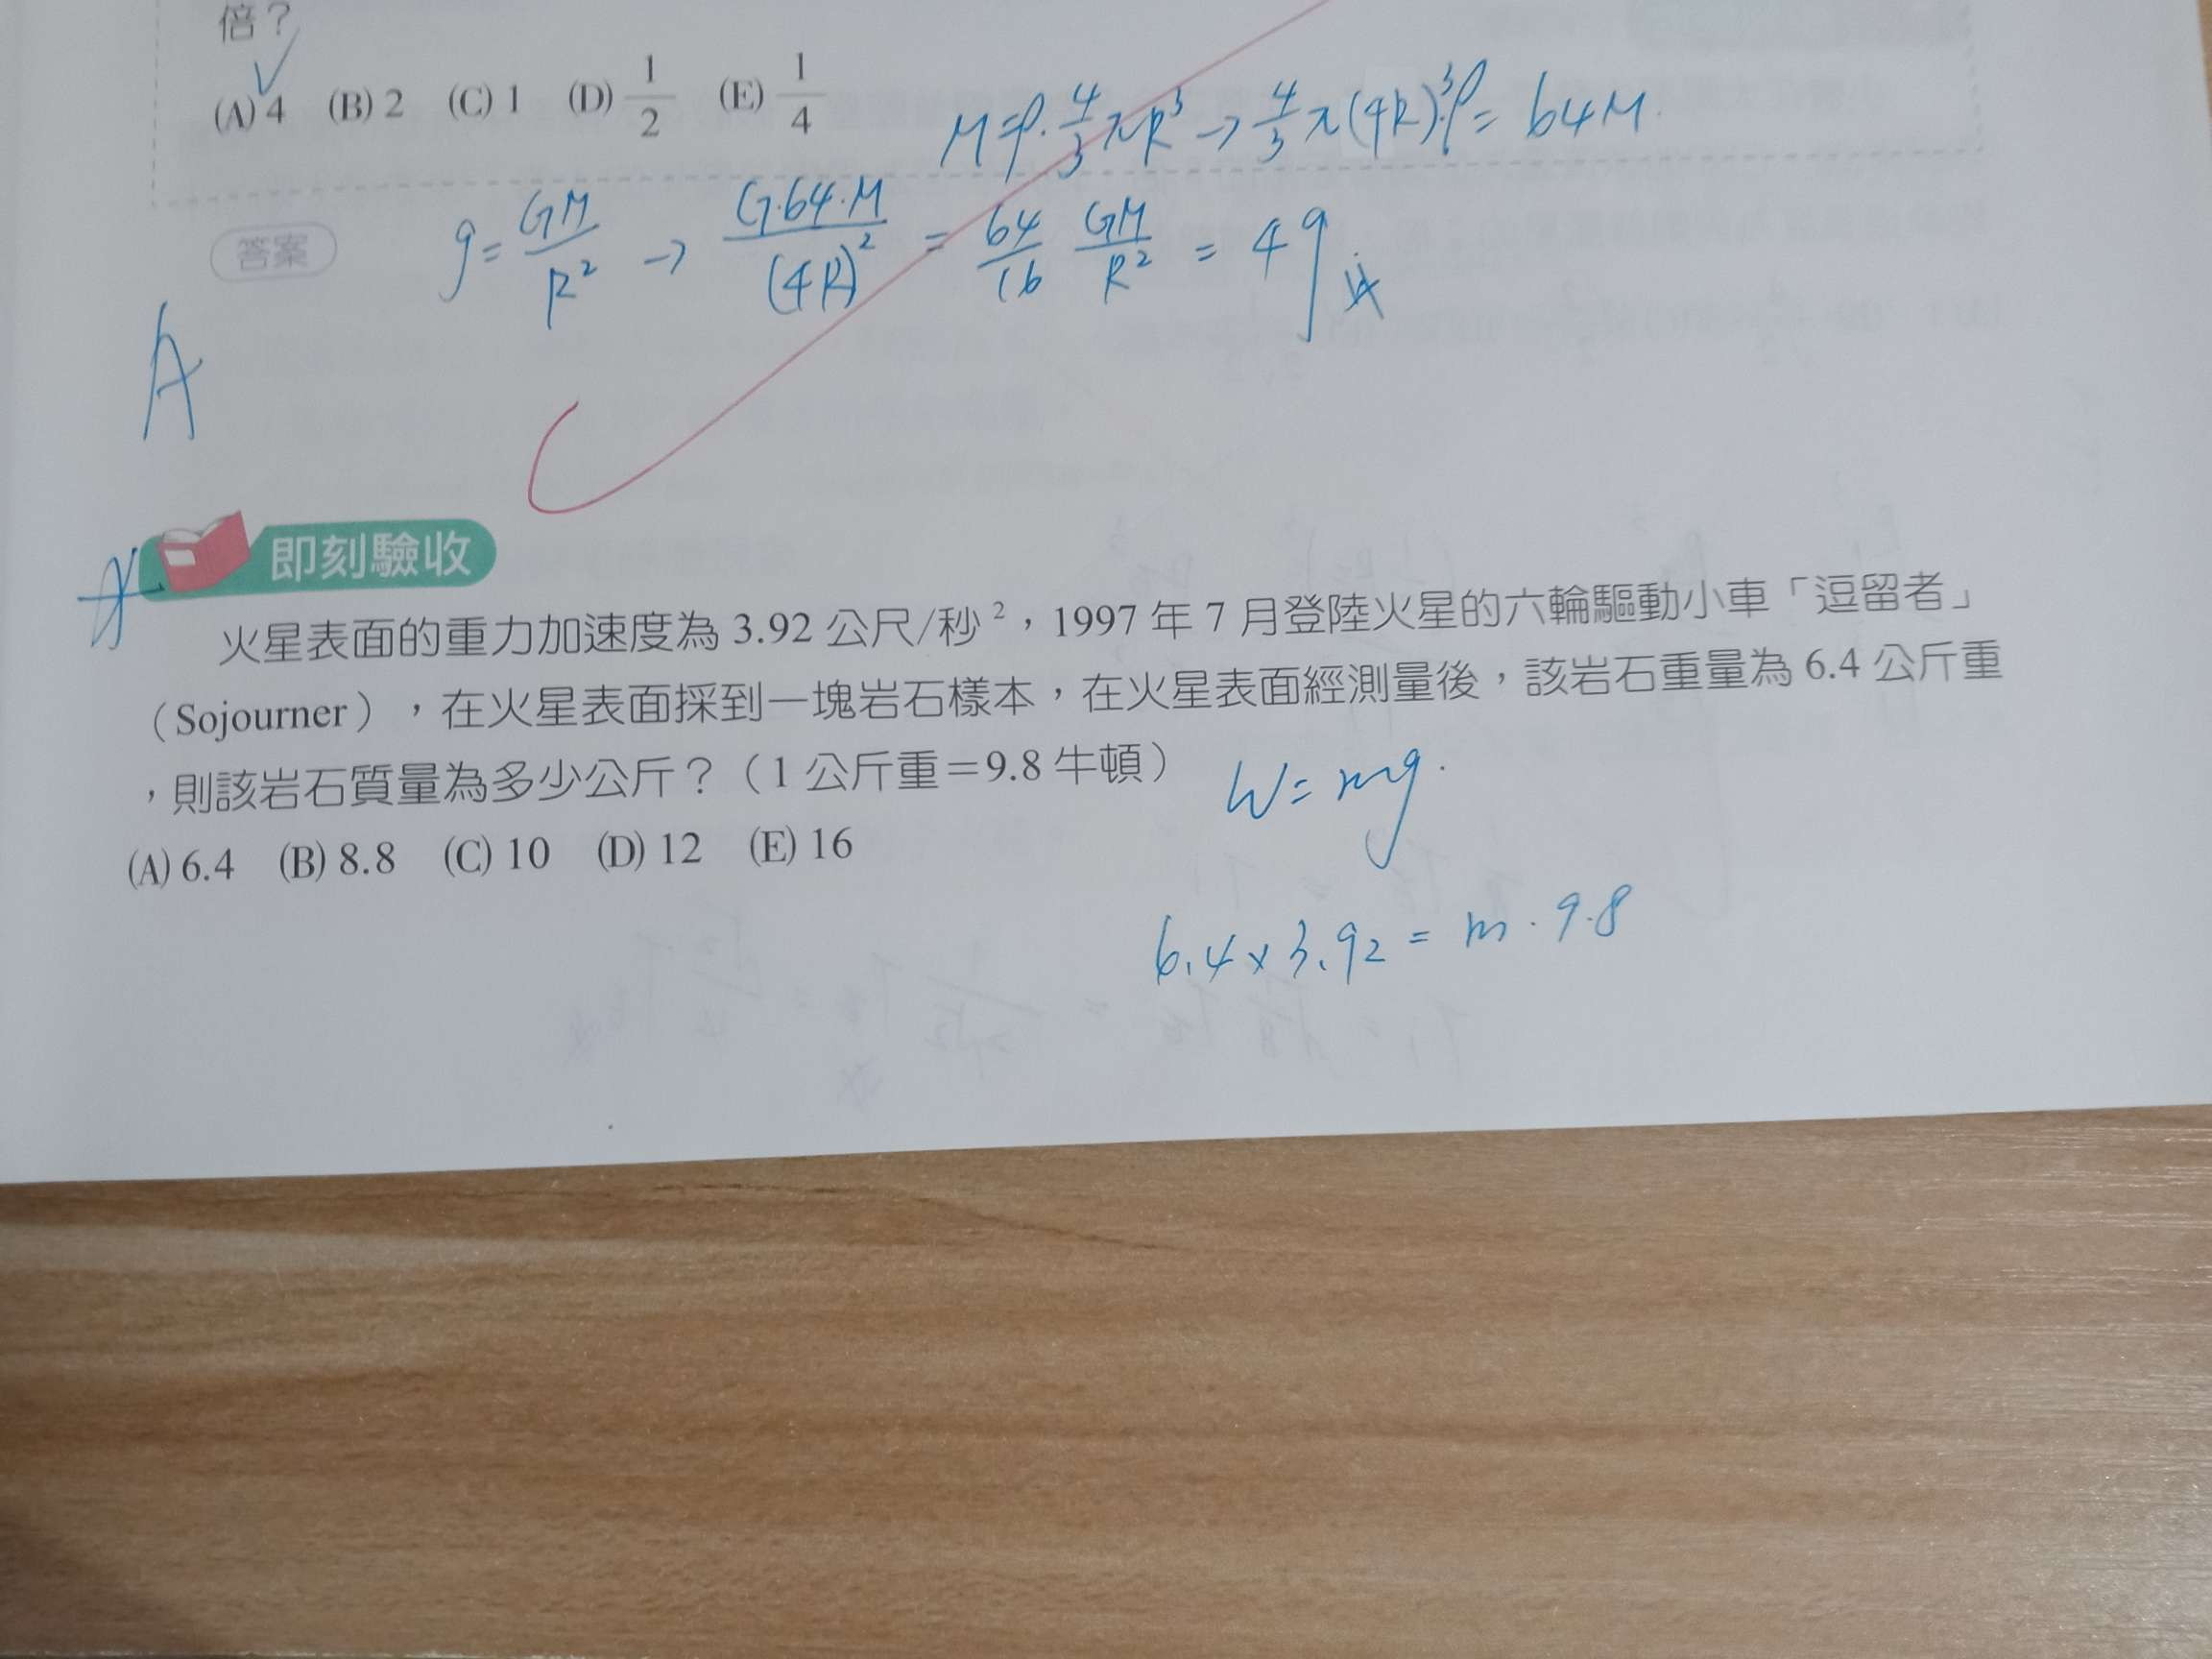 倍？
(A) 4 (B) 2 (C) 1 (D) 1/2 (E) 1/4
M=ρ·4/3πR³→4/3π(4R)³·ρ=64M
答案
g=GM/R²→G·64·M/(4R)²=64/16 GM/R²=4g
A
即刻驗收
火星表面的重力加速度為 3.92 公尺/秒²，1997 年 7 月登陸火星的六輪驅動小車「逗留者」
（Sojourner），在火星表面採到一塊岩石樣本，在火星表面經測量後，該岩石重量為 6.4 公斤重
，則該岩石質量為多少公斤？（1 公斤重＝9.8 牛頓）
W=mg.
(A) 6.4 (B) 8.8 (C) 10 (D) 12 (E) 16
6.4×3.92=m·9.8